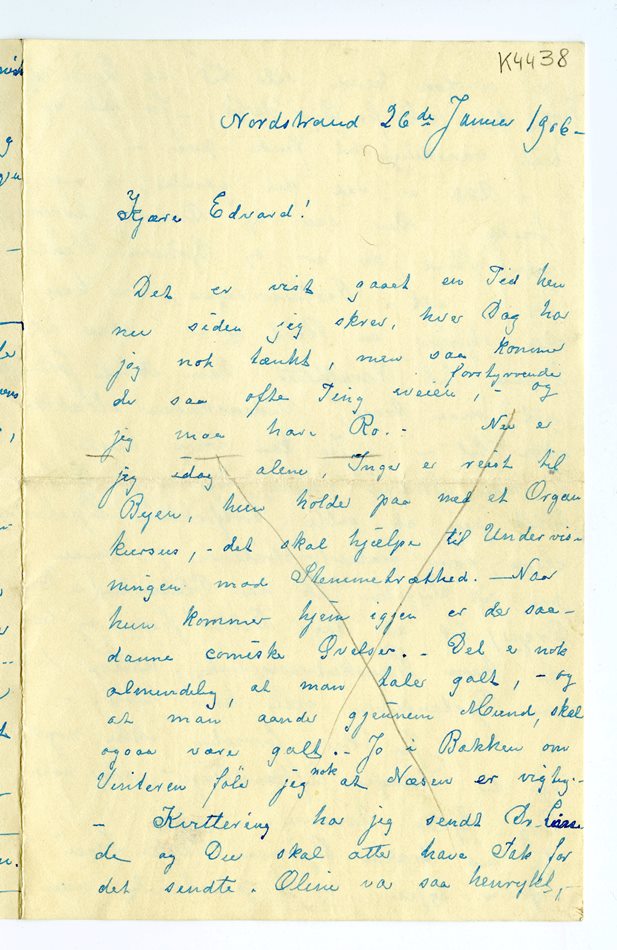 K4438
Nordstrand 26de Januar 1906-
Kjære Edvard!
Det er vist gaaet en Tid hen
nu siden jeg skrev, hver Dag har
jeg nok tænkt, men saa kommer
der saa ofte forstyrrende Ting iveien, - og
jeg maa have Ro. - Nu er
jeg idag alene, Inga er reist til
Byen, hun holder paa med et Organ
kursus, - det skal hjælpe til Undervis-
ningen mod Stemmetræthed. - Naar
hun kommer hjem igjen er der saa-
danne comiske Øvelser. - Det er nok
almindelig, at man taler galt, - og
at man aander gjennem Mund, skal
ogsaa være galt. - Jo i Bakken om
Vinteren føler jeg nok at Næsen er vigtig. -
- Kvittering har jeg sendt Dr.
de og Du skal atter have Tak for
det sendte. Oline var saa henrykt, -